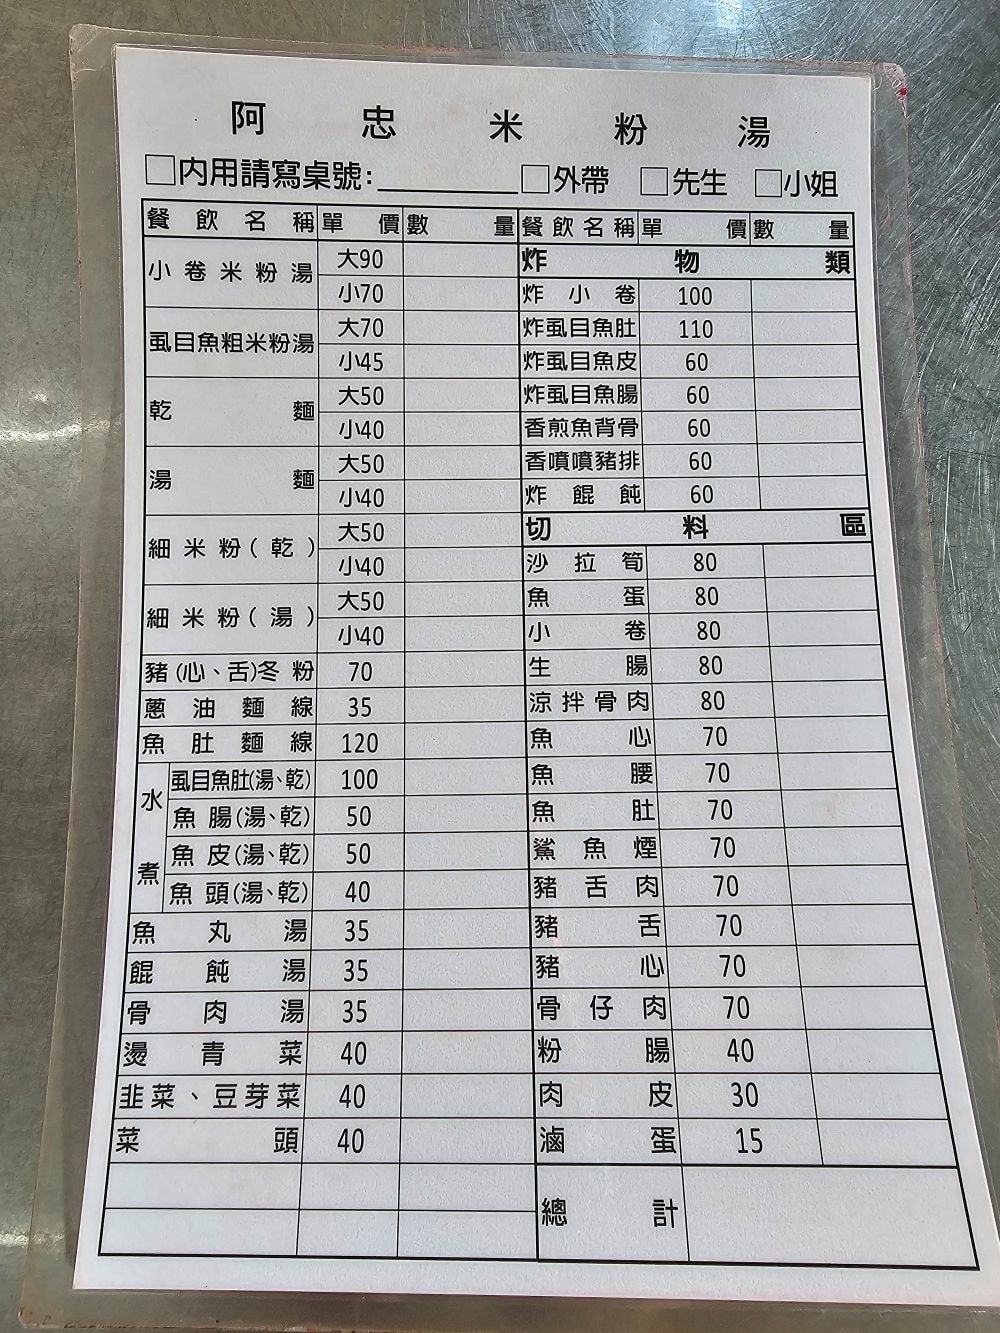 阿忠米粉湯
□內用請寫桌號:________ □外帶 □先生 □小姐
餐飲名稱 單價 數量
小卷米粉湯 大90
小70
虱目魚粗米粉湯 大70
小45
乾麵 大50
小40
湯麵 大50
小40
細米粉(乾) 大50
小40
細米粉(湯) 大50
小40
豬(心、舌)冬粉 70
蔥油麵線 35
魚肚麵線 120
水煮
虱目魚肚(湯、乾) 100
魚腸(湯、乾) 50
魚皮(湯、乾) 50
魚頭(湯、乾) 40
魚丸湯 35
餛飩湯 35
骨肉湯 35
燙青菜 40
韭菜、豆芽菜 40
菜頭 40
餐飲名稱 單價 數量
炸物類
炸小卷 100
炸虱目魚肚 110
炸虱目魚皮 60
炸虱目魚腸 60
香煎魚背骨 60
香噴噴豬排 60
炸餛飩 60
切料區
沙拉筍 80
魚蛋 80
小卷 80
生腸 80
涼拌骨肉 80
魚心 70
魚腰 70
魚肚 70
鯊魚煙 70
豬舌肉 70
豬舌 70
豬心 70
骨仔肉 70
粉腸 40
肉皮 30
滷蛋 15
總計